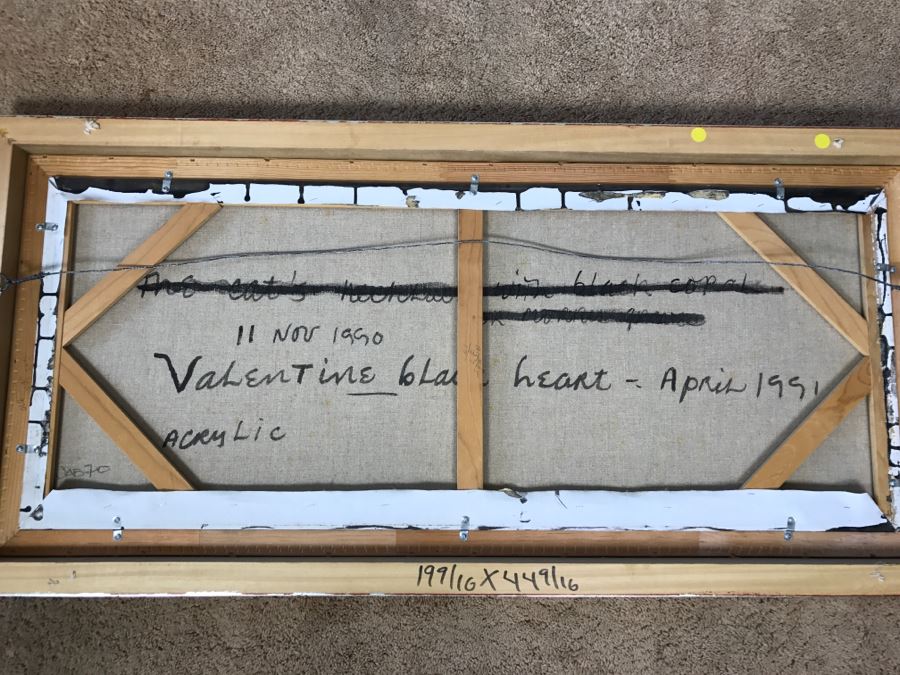 The cat's necklace with black coral
11 NOV 1990
Valentine black heart - April 1991
ACRYLIC
199/16 X 449/16